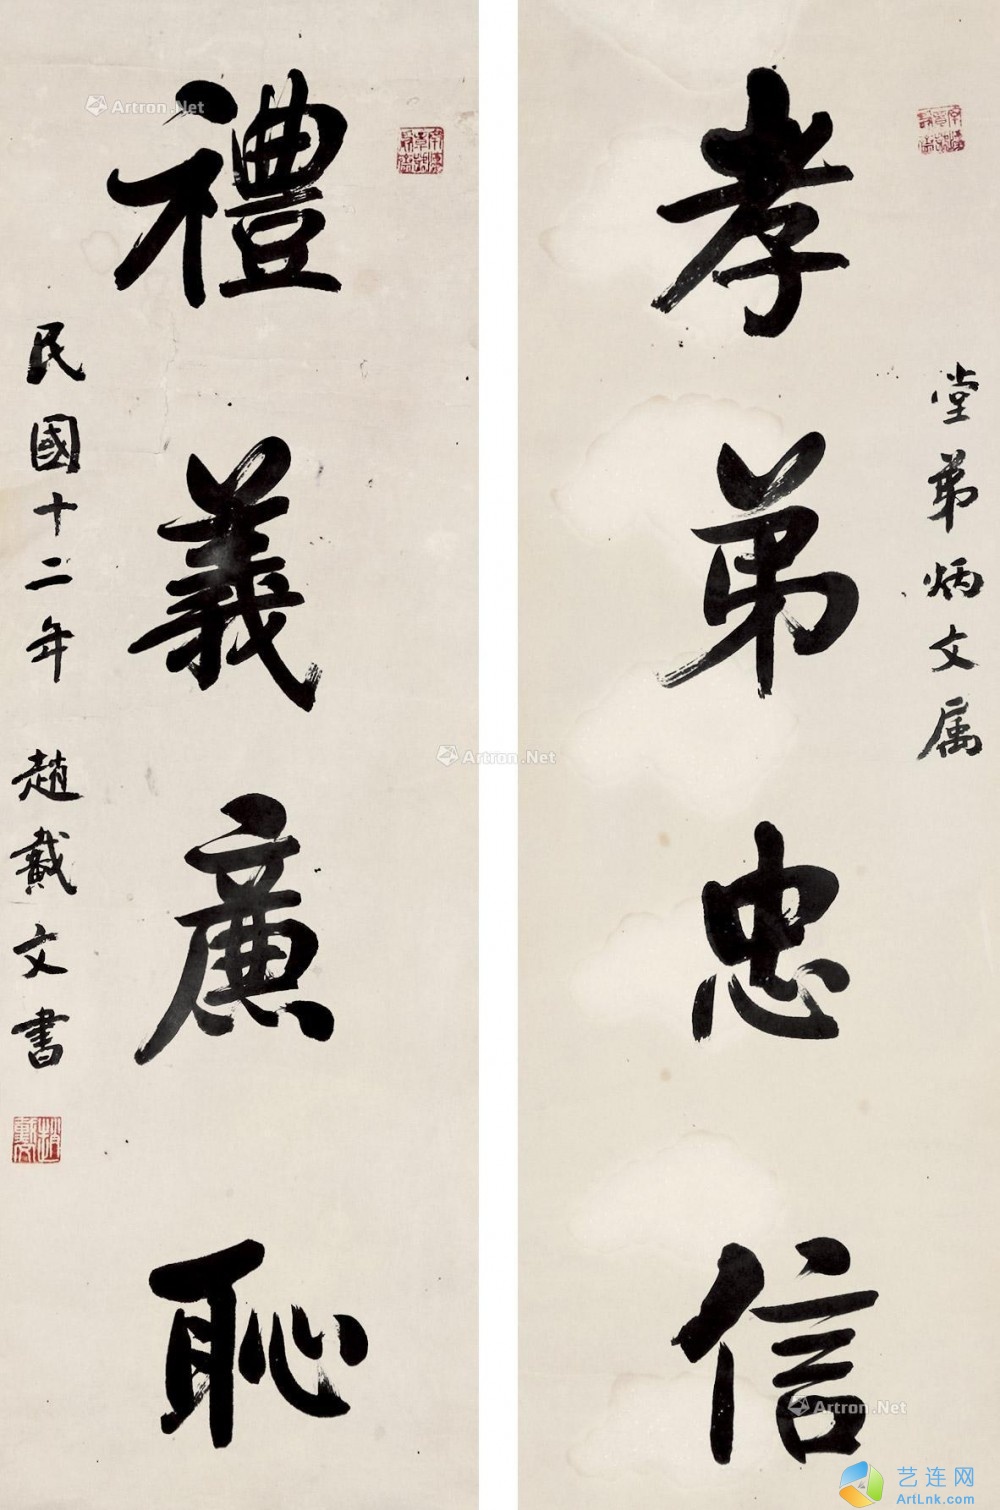 堂弟炳文属
孝弟忠信
禮義廉恥
民國十二年 趙戴文書
Artron.Net
Artron.Net
Artron.Net
艺连网
ArtLnk.com